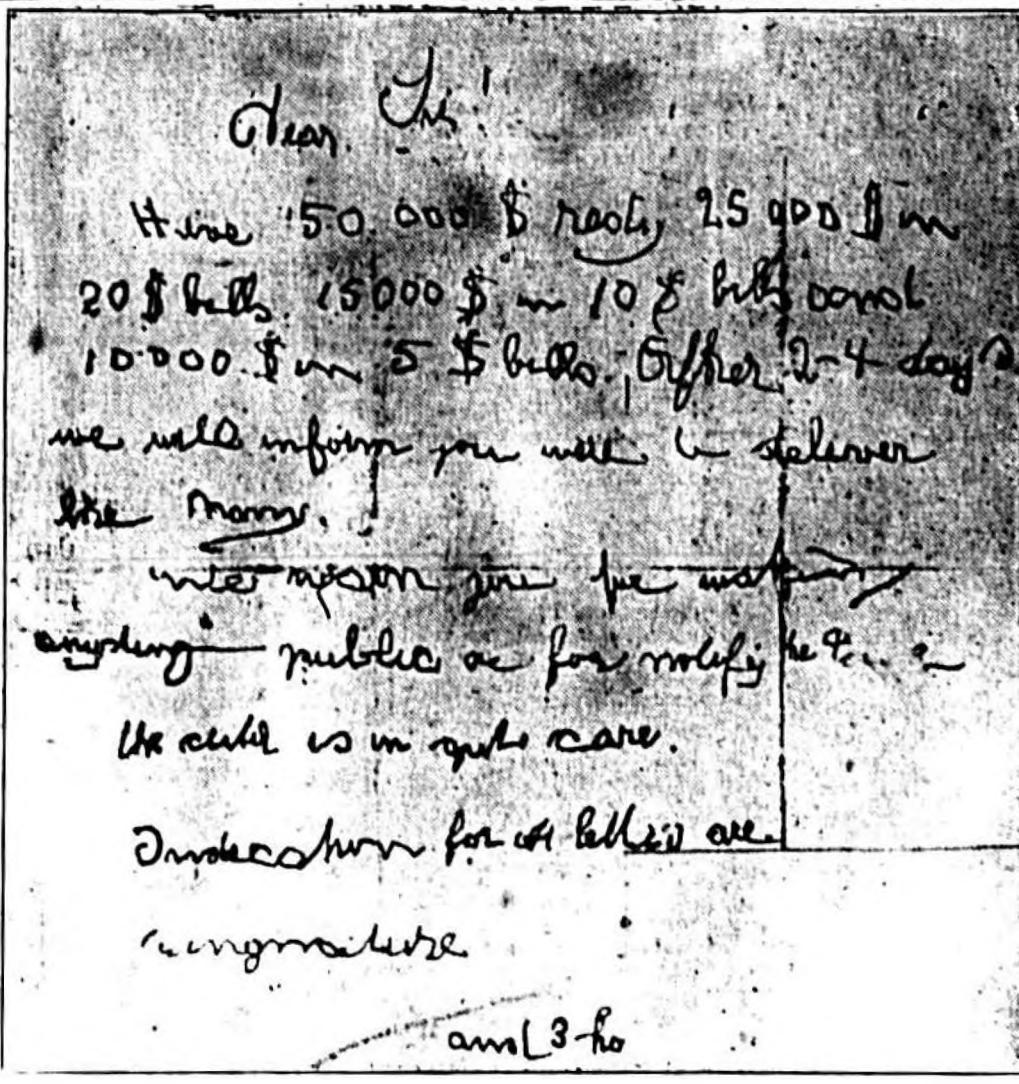 Dear Sir!
Have 50.000 $ redy 25000 $ in
20 $ bills 15000 $ in 10 $ bills and
10000 $ in 5 $ bills. After 2-4 days
we will inform you were to deliver
the Mony.
we warn you for making
anyding public or for notify the
the child is in gute care.
Indication for all letters are
singnature
and 3 ho